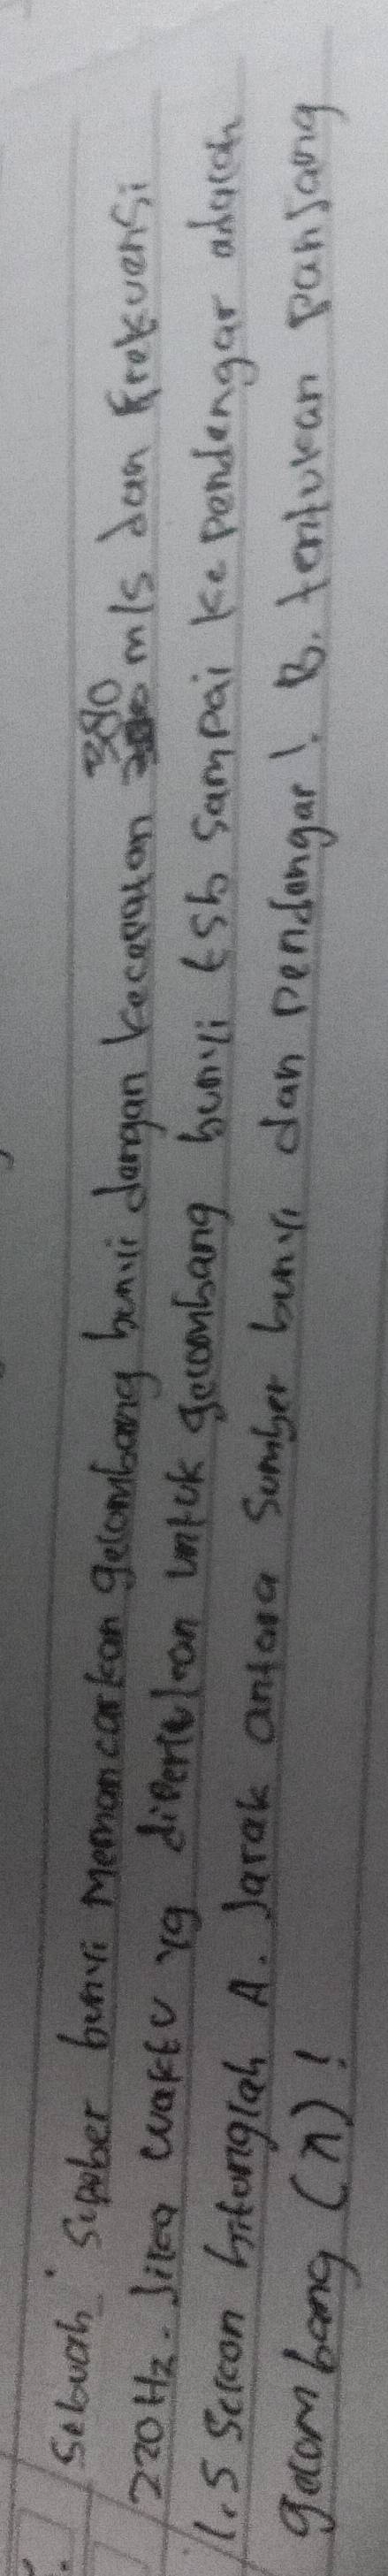 Sebuah sumber bunyi memancarkan gelombang bunyi dengan kecepatan 340 m/s dan Frekuensi
220 Hz. Jika waktu yg diperlukan untuk gelombang bunyi tsb sampai ke pendengar adalah
1,5 sekon hitunglah A. Jarak antara sumber bunyi dan pendengar! B. tentukan panjang
gelombang (λ)!